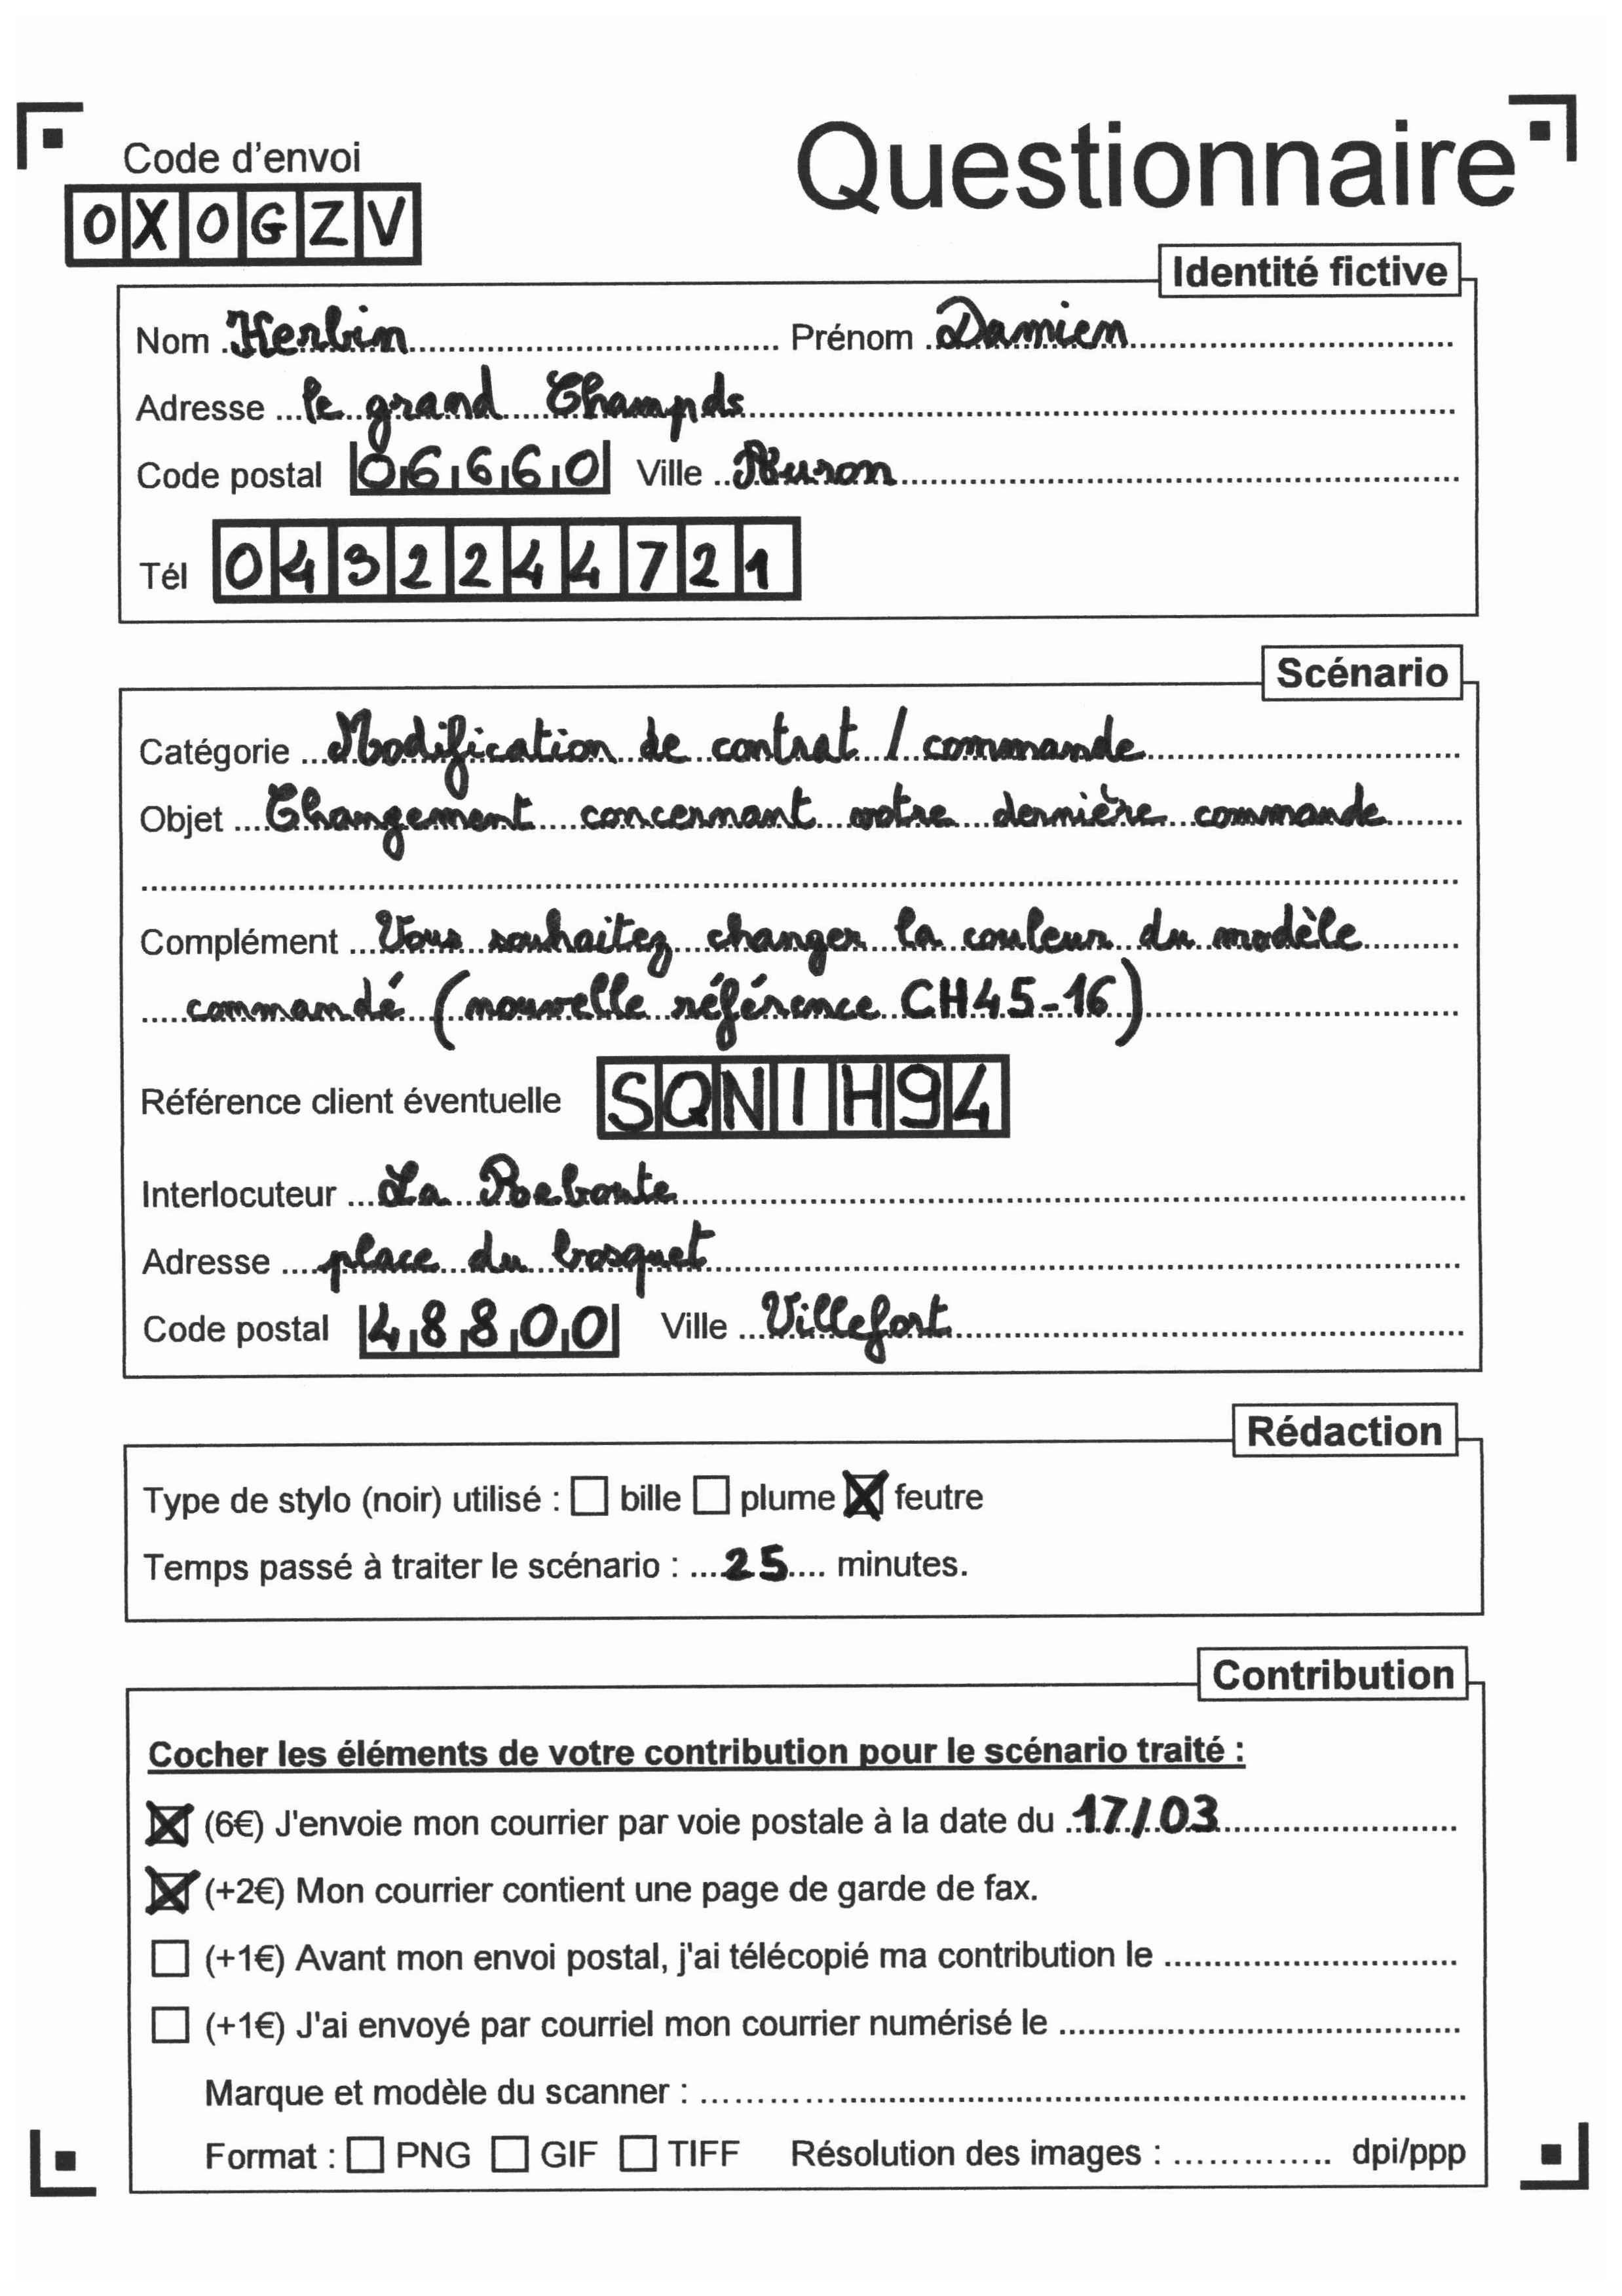 Code d'envoi
Questionnaire
OXOGZV
Identité fictive
Nom Herbin Prénom Damien
Adresse le grand Champds
Code postal 06660 Ville
Tél 0432244721
Scénario
Catégorie Modification de contrat / commande
Objet Changement concernant votre dernière commande
Complément Vous souhaitez changer la couleur du modèle
commandé (nouvelle référence CH45-16)
Référence client éventuelle SQNIH94
Interlocuteur La Reboute
Adresse place du bosquet
Code postal 48800 Ville Villefort
Rédaction
Type de stylo (noir) utilisé : ☐ bille ☐ plume ☒ feutre
Temps passé à traiter le scénario : 25 minutes.
Contribution
Cocher les éléments de votre contribution pour le scénario traité :
☒ (6€) J'envoie mon courrier par voie postale à la date du 17/03
☒ (+2€) Mon courrier contient une page de garde de fax.
☐ (+1€) Avant mon envoi postal, j'ai télécopié ma contribution le
☐ (+1€) J'ai envoyé par courriel mon courrier numérisé le
Marque et modèle du scanner :
Format : ☐ PNG ☐ GIF ☐ TIFF Résolution des images : dpi/ppp